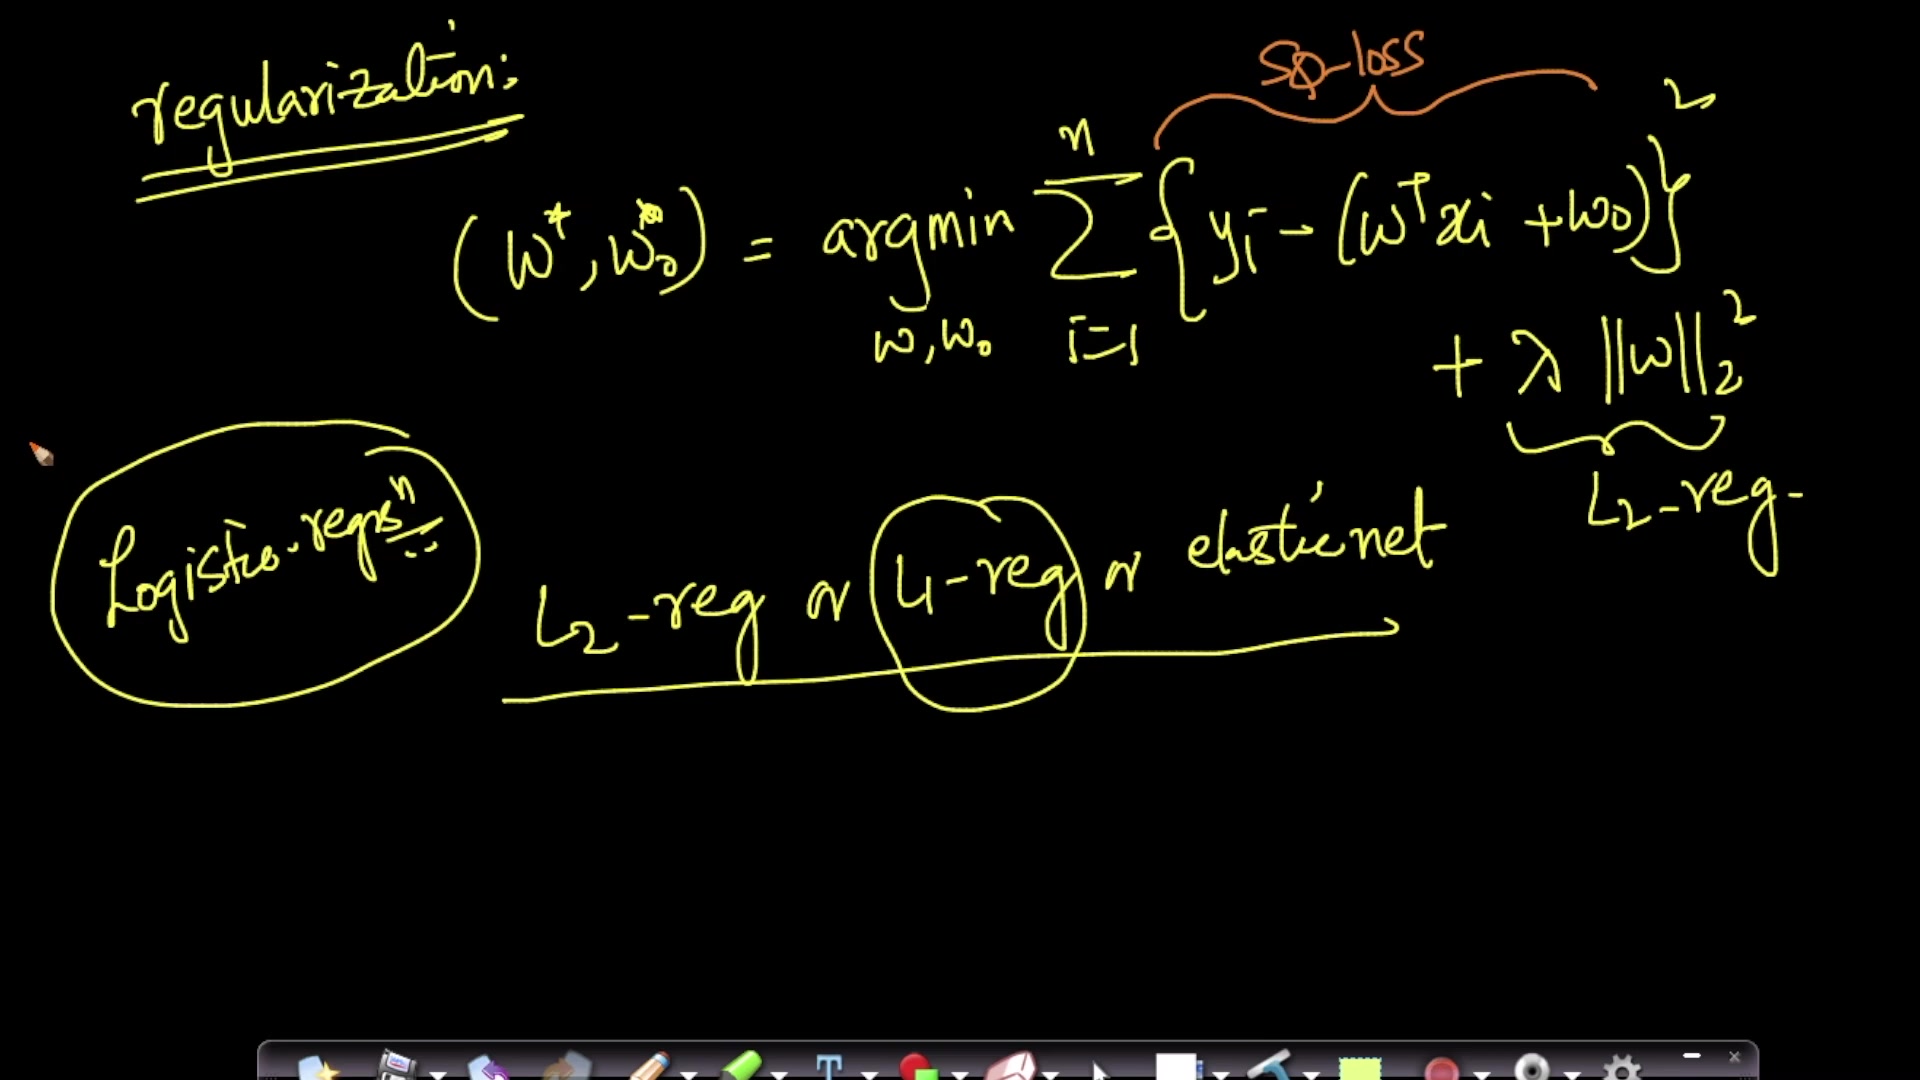 regularization:
sq-loss
(w*, w₀*) = argmin_{w, w₀} Σ_{i=1}^{n} {yi - (wᵀxi + w₀)}²
+ λ ||w||₂²
L₂-reg.
Logistic-regrsⁿ
L₂-reg or L1-reg or elastic net